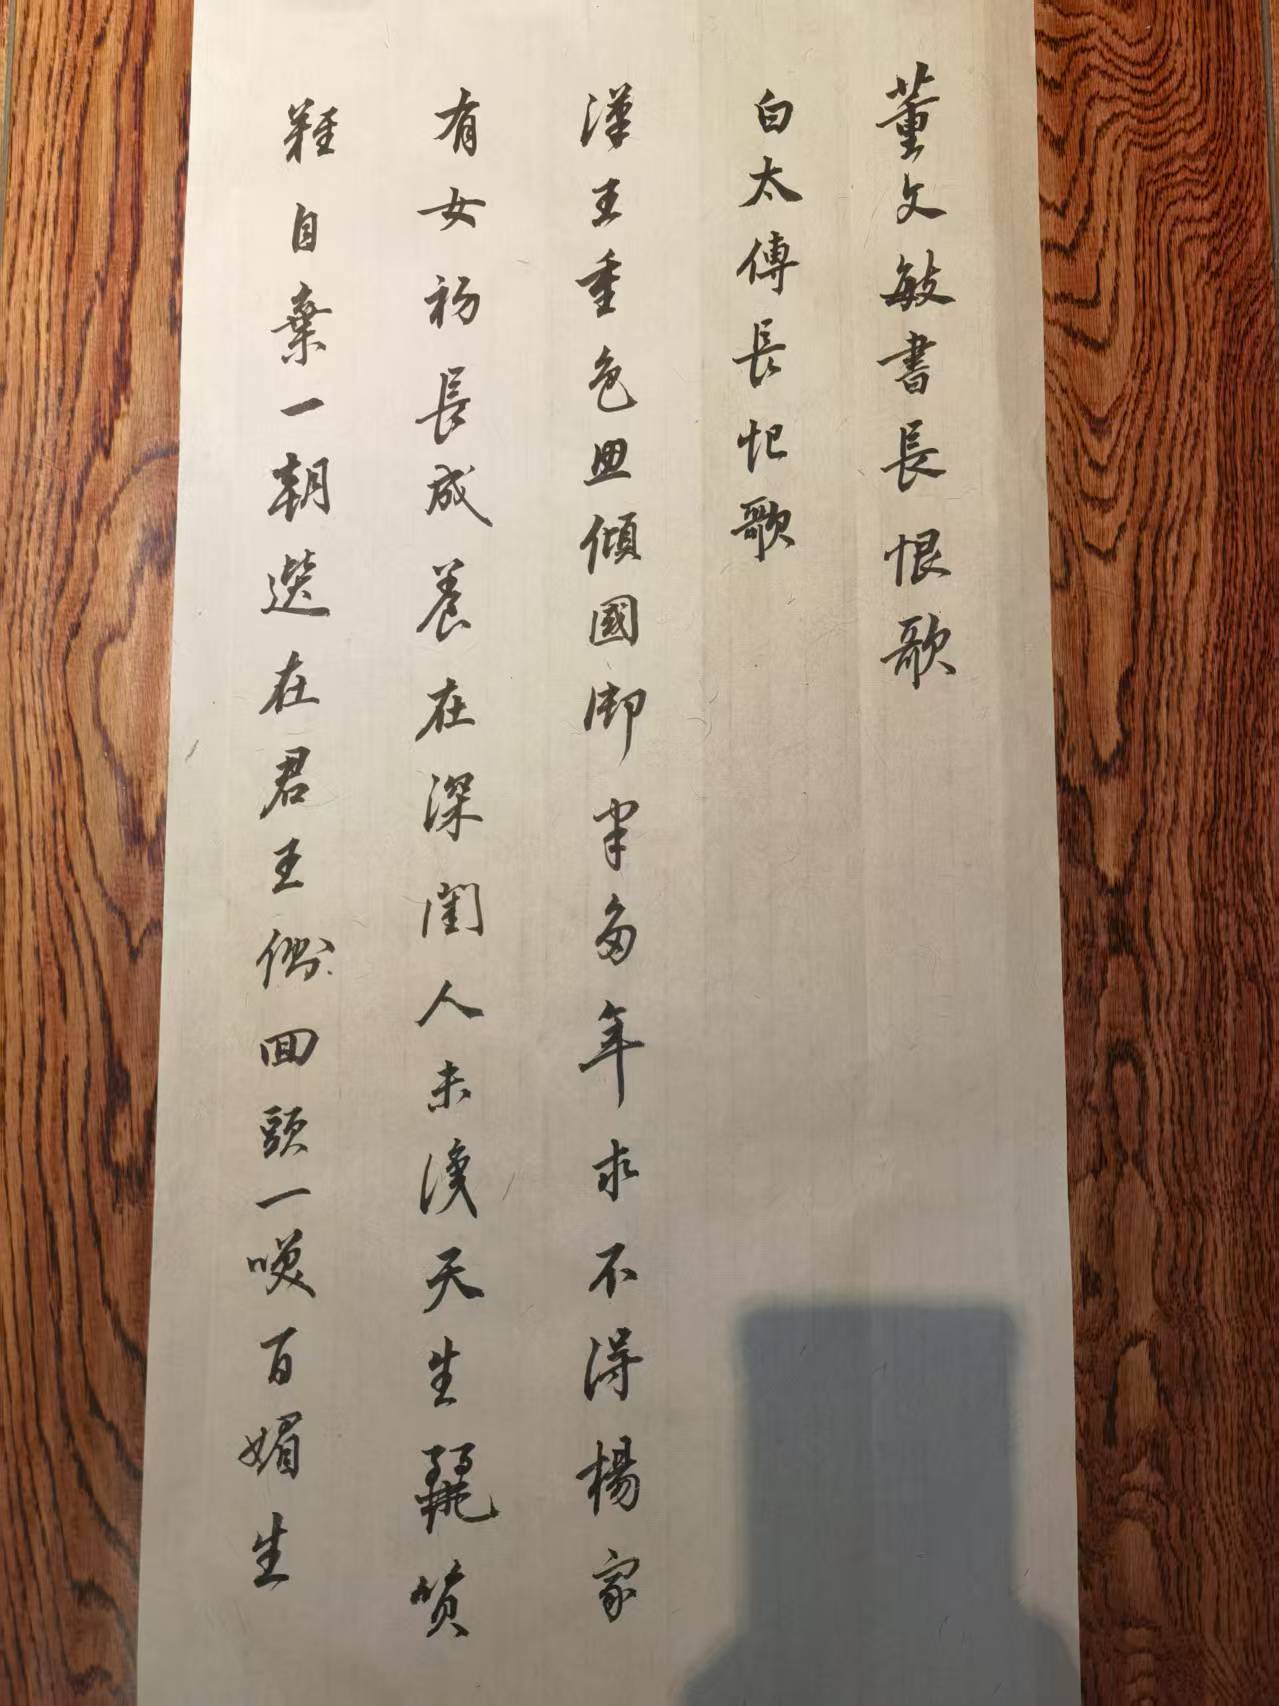 董文敏書長恨歌
白太傅長恨歌
漢王重色思傾國御宇多年求不得楊家
有女初長成養在深閨人未識天生麗質
難自棄一朝選在君王側回頭一笑百媚生